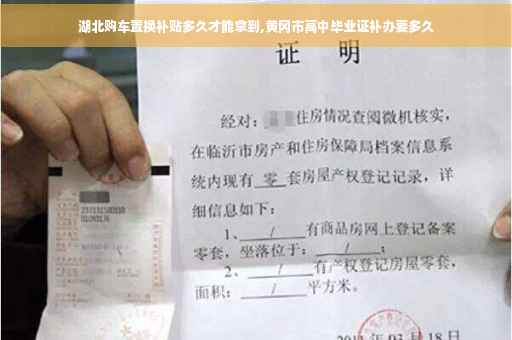 湖北购车置换补贴多久才能拿到,黄冈市高中毕业证补办要多久
证 明
经对: 住房情况查阅微机核实,
在临沂市房产和住房保障局档案信息系
统内现有 零 套房屋产权登记记录，详
细信息如下:
1、 / 有商品房网上登记备案
零套，坐落位于: / ;
2、 / 有产权登记房屋零套，
面积: / 平方米。
03月18日